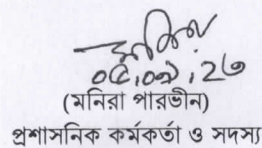 ০৫.০৯.২৩
(মনিরা পারভীন)
প্রশাসনিক কর্মকর্তা ও সদস্য